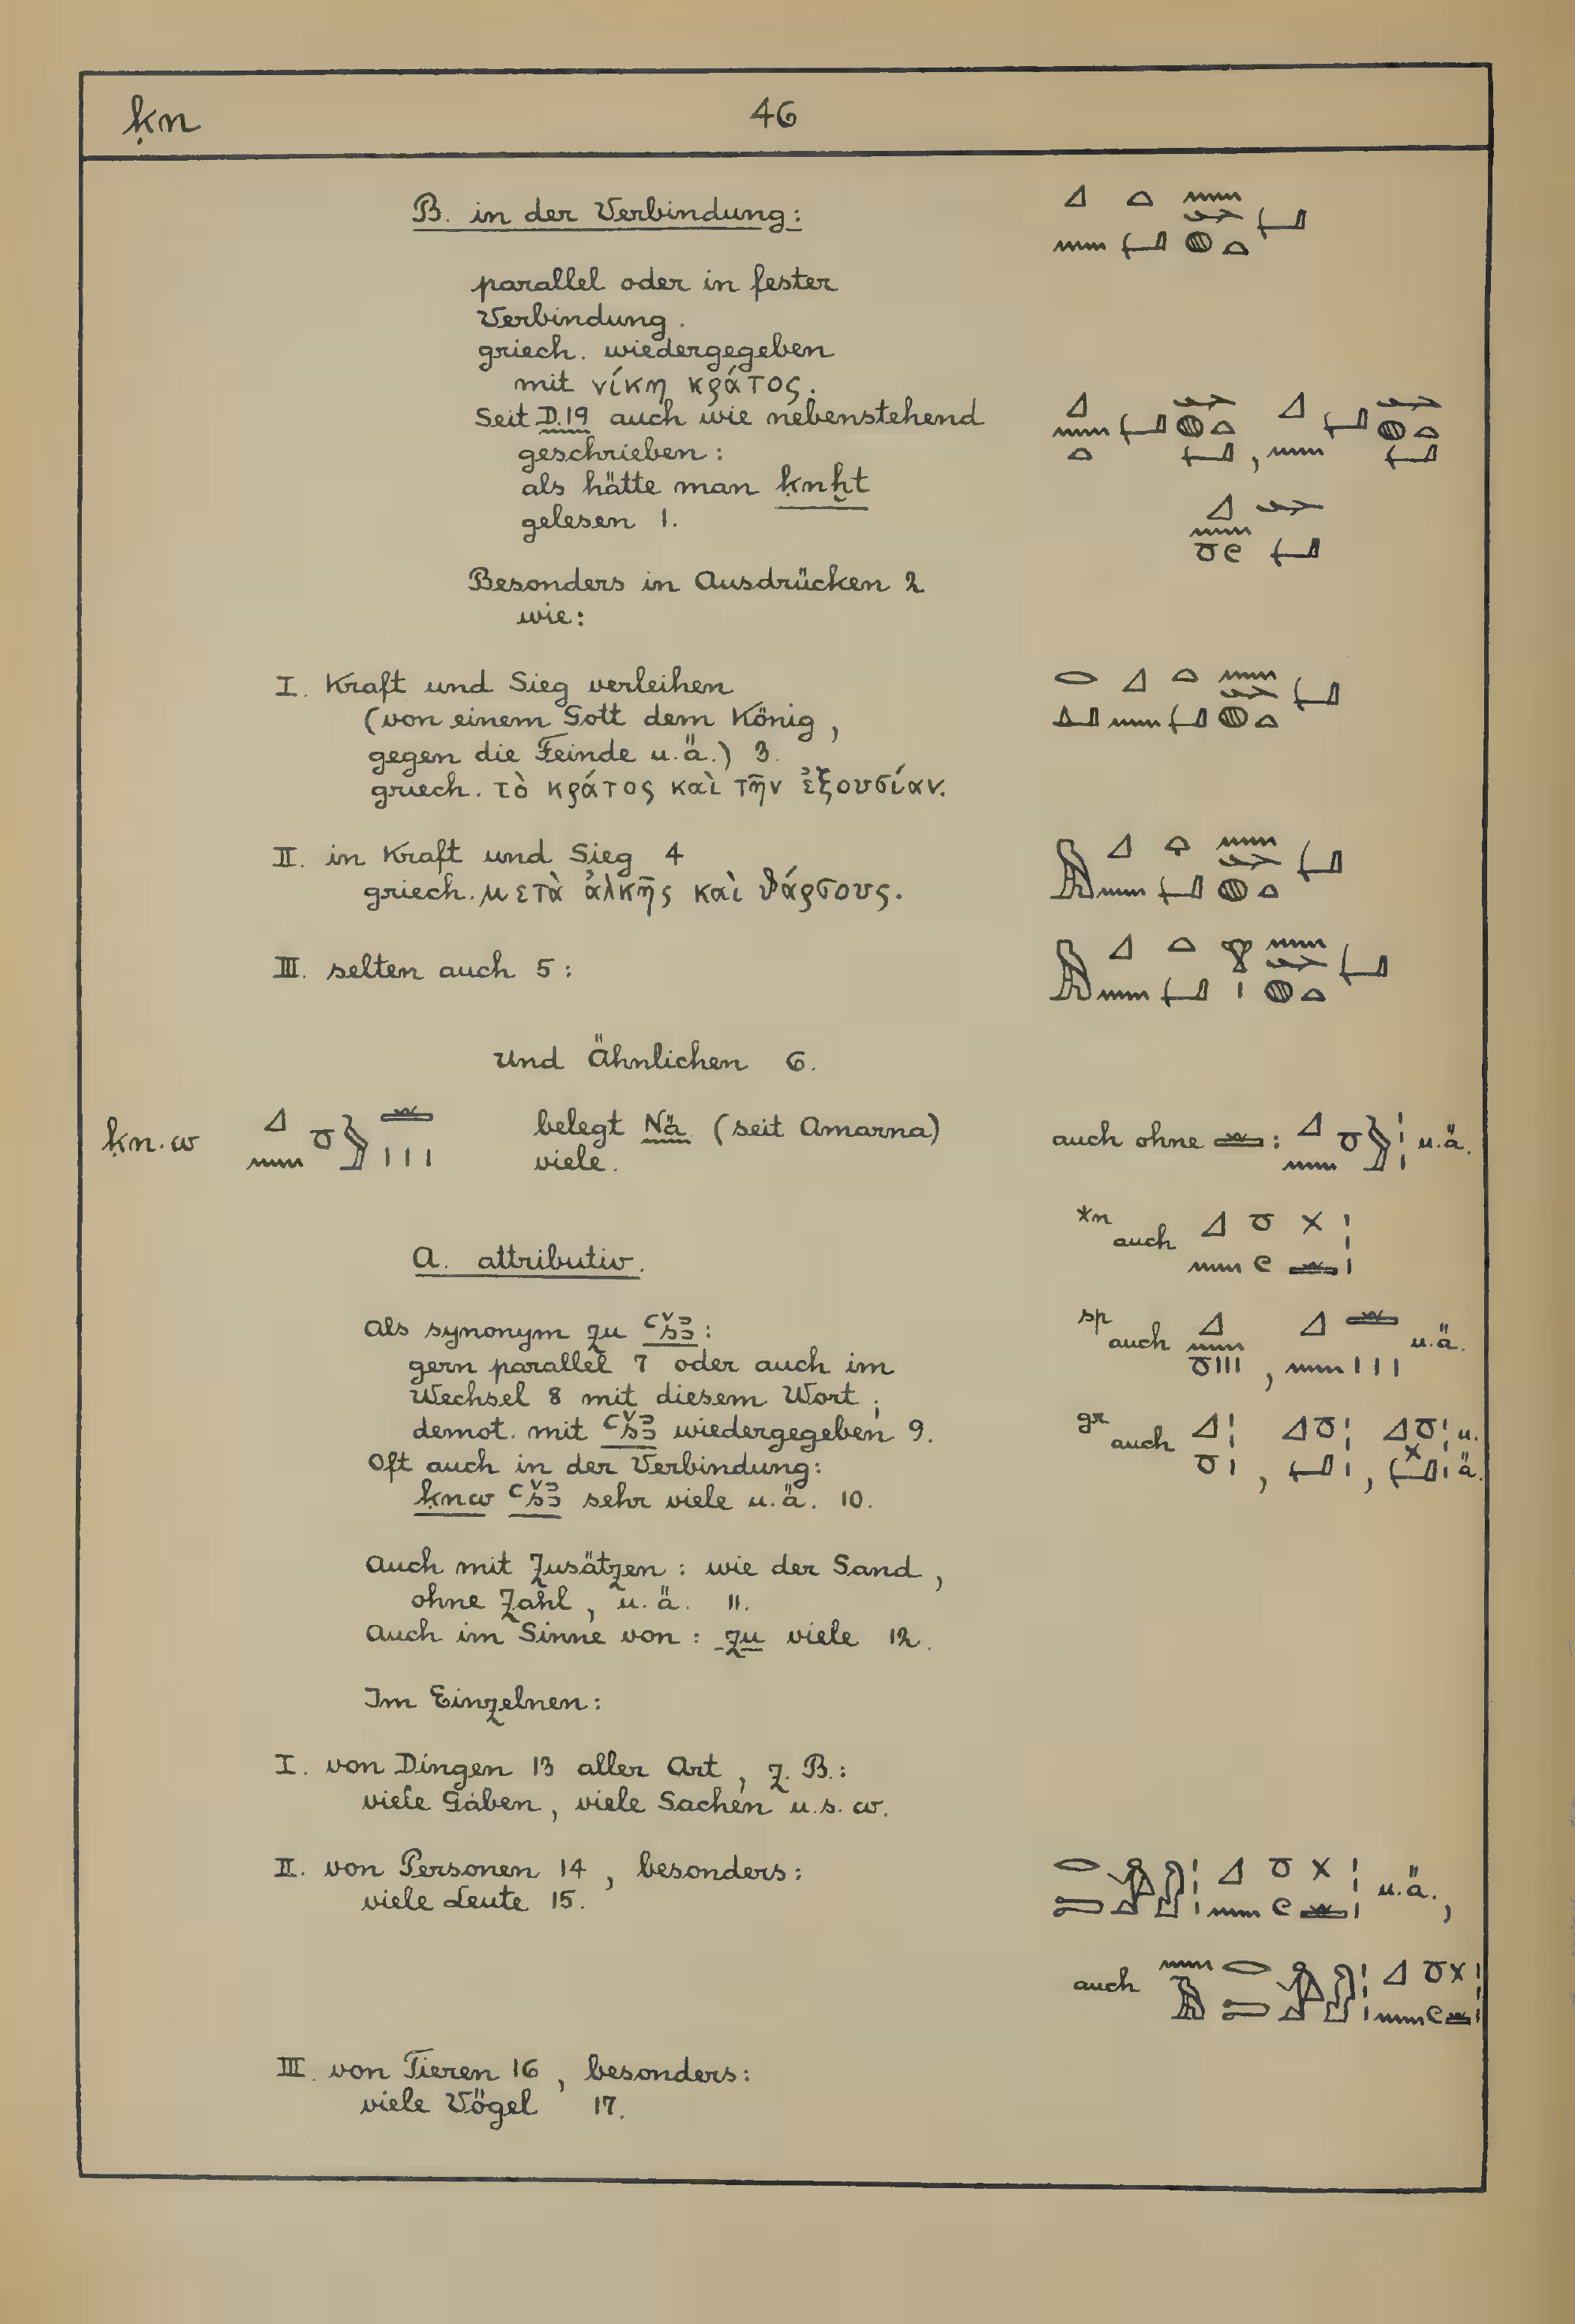 ḳn 46
B. in der Verbindung:
parallel oder in fester
Verbindung.
griech. wiedergegeben
mit νίκη κράτος.
Seit D.19 auch wie nebenstehend
geschrieben:
als hätte man ḳnḫt
gelesen 1.
Besonders in Ausdrücken 2
wie:
I. Kraft und Sieg verleihen
(von einem Gott dem König,
gegen die Feinde u.ä.) 3.
griech. τὸ κράτος καὶ τῆν ἐξουσίαν.
II. in Kraft und Sieg 4
griech. μετὰ ἀλκῆς καὶ ϑάρσους.
III. selten auch 5:
und Ähnlichen 6.
ḳn.w belegt Nä. (seit Amarna) auch ohne : u.ä.
viele.
*n auch
A. attributiv.
Als synonym zu ꜥšꜣ: sp auch , u.ä.
gern parallel 7 oder auch im
Wechsel 8 mit diesem Wort;
demot. mit ꜥšꜣ wiedergegeben 9. gr auch , , u.ä.
Oft auch in der Verbindung:
ḳnw ꜥšꜣ sehr viele u.ä. 10.
Auch mit Zusätzen: wie der Sand,
ohne Zahl, u.ä. 11.
Auch im Sinne von: zu viele 12.
Im Einzelnen:
I. von Dingen 13 aller Art, z. B.:
viele Gaben, viele Sachen u.s.w.
II. von Personen 14, besonders: u.ä.,
viele Leute 15.
auch
III. von Tieren 16, besonders:
viele Vögel 17.